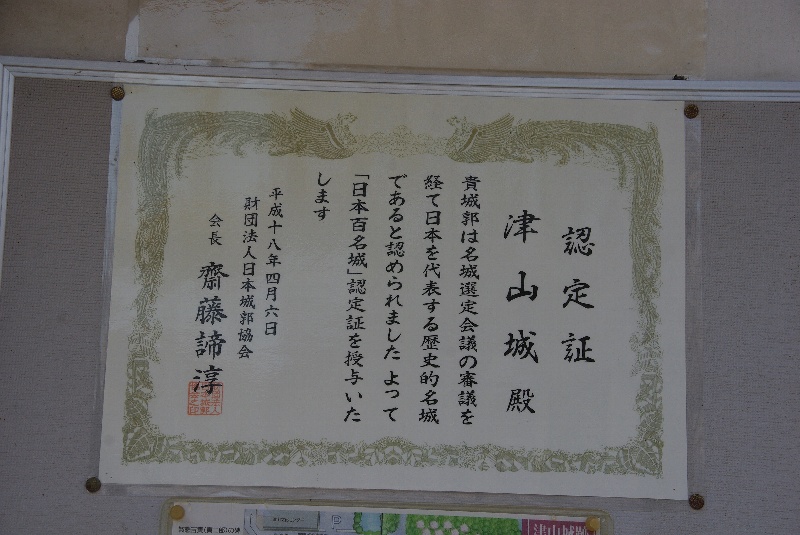 認定証
津山城殿
貴城郭は名城選定会議の審議を
経て日本を代表する歴史的名城
であると認められました よって
「日本百名城」認定証を授与いた
します
平成十八年四月六日
財団法人日本城郭協会
会長 齋藤諦淳
津山城跡